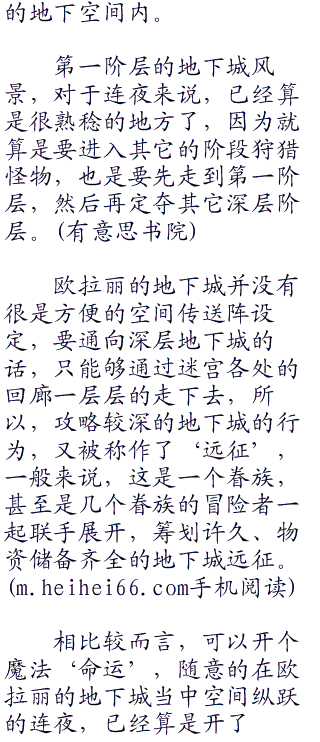 的地下空间内。
第一阶层的地下城风
景，对于连夜来说，已经算
是很熟稔的地方了，因为就
算是要进入其它的阶段狩猎
怪物，也是要先走到第一阶
层，然后再定夺其它深层阶
层。(有意思书院)
欧拉丽的地下城并没有
很是方便的空间传送阵设
定，要通向深层地下城的
话，只能够通过迷宫各处的
回廊一层层的走下去，所
以，攻略较深的地下城的行
为，又被称作了‘远征’，
一般来说，这是一个眷族，
甚至是几个眷族的冒险者一
起联手展开，筹划许久、物
资储备齐全的地下城远征。
(m.heihei66.com手机阅读)
相比较而言，可以开个
魔法‘命运’，随意的在欧
拉丽的地下城当中空间纵跃
的连夜，已经算是开了